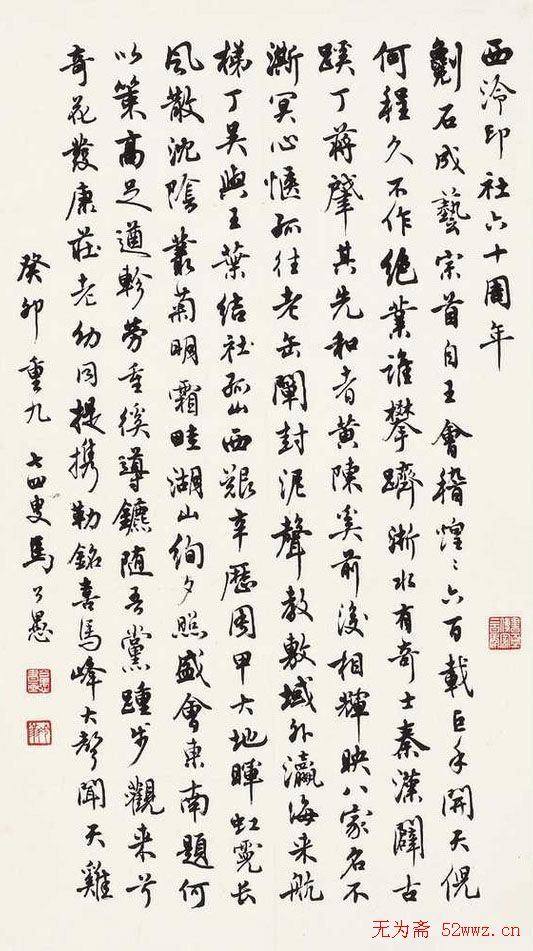 西泠印社六十周年
劖石成藝宗首自王會稽煌〻六百載巨手開天倪
何程久不作絕業誰攀躋浙水有奇士秦漢闢古
蹊丁蔣肇其先和者黃陳奚前後相輝映八家名不
澌冥心愜孤往老缶闡封泥聲教敷域外瀛海來航
梯丁吳與王葉結社孤山西艱辛歷周甲大地暉虹霓長
風散沈陰叢菊明霜畦湖山絢夕照盛會東南題何
以策高足遒軫勞重徯導鑣隨吾黨踵步觀來兮
奇花發康莊老幼同提携勒銘喜馬峰大聲聞天雞
癸卯重九 七四叟馬公愚
无为斋 52wwz.cn